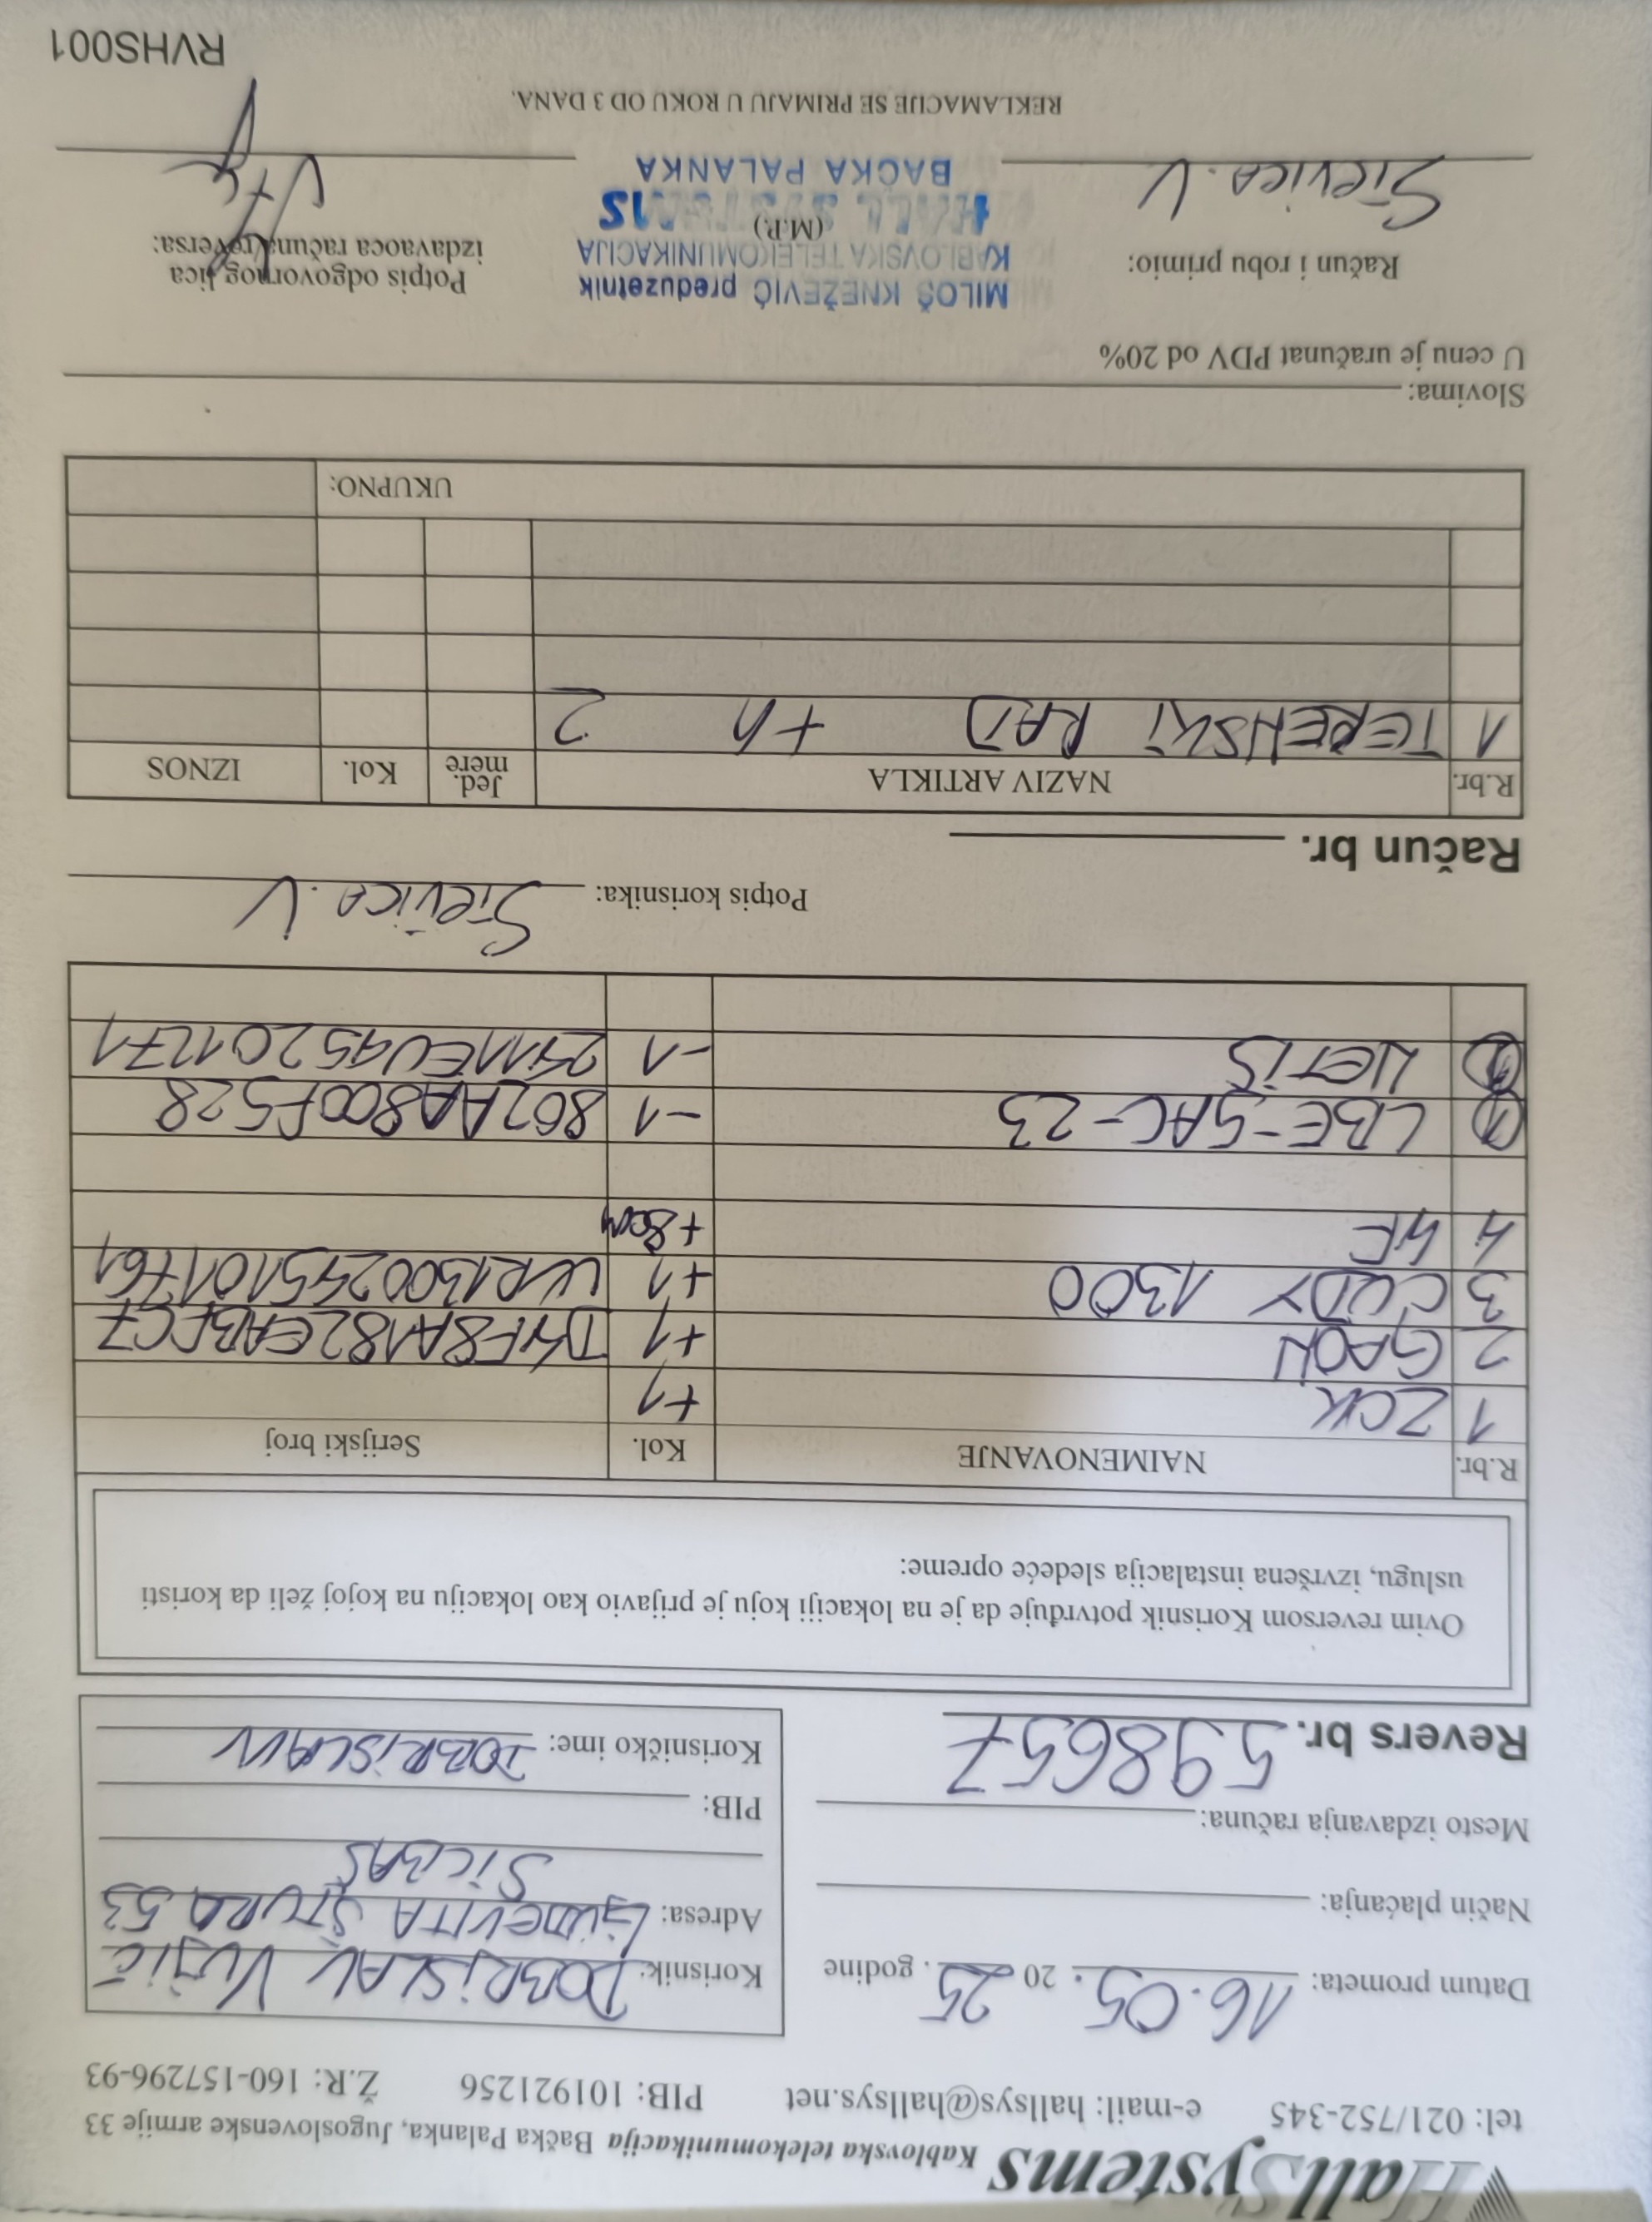 HallSystems Kablovska telekomunikacija Bačka Palanka, Jugoslovenske armije 33
tel: 021/752-345 e-mail: hallsys@hallsys.net PIB: 101921256 Ž.R: 160-157296-93
Datum prometa: 16.05. 20 25. godine
Način plaćanja:
Mesto izdavanja računa:
Revers br. 598657
Korisnik: DOBRISLAV VUJIĆ
Adresa: LJUDEVITA ŠTURA 53
SILBAŠ
PIB:
Korisničko ime: DOBRISLAVV
Ovim reversom Korisnik potvrđuje da je na lokaciji koju je prijavio kao lokaciju na kojoj želi da koristi
uslugu, izvršena instalacija sledeće opreme:
R.br. NAIMENOVANJE Kol. Serijski broj
1 ZOK +1
2 GAON +1
3 CUDY 1300 +1 WR1300245101761
4 4F +80m
1 LBE-5AC-23 -1 802AA800F528
2 NETIS -1
Potpis korisnika: Stevica.V
Račun br.
R.br. NAZIV ARTIKLA Jed. mere Kol. IZNOS
1 TERENSKI RAD +h 2
UKUPNO:
Slovima:
U cenu je uračunat PDV od 20%
Račun i robu primio:
Stevica.V
MILOŠ KNEŽEVIĆ preduzetnik
KABLOVSKA TELEKOMUNIKACIJA
(M.P.)
HALL SYSTEMS
BAČKA PALANKA
Potpis odgovornog lica
izdavaoca računa/reversa:
REKLAMACIJE SE PRIMAJU U ROKU OD 3 DANA.
RVHS001